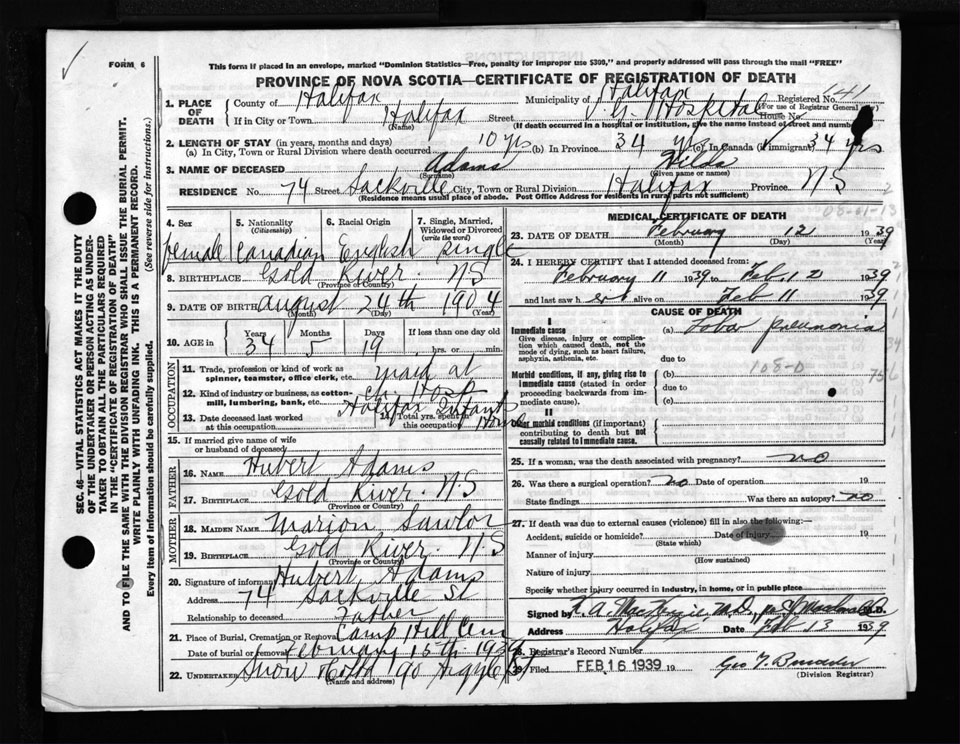 FORM 6
This form if placed in an envelope, marked "Dominion Statistics—Free, penalty for improper use $300," and properly addressed will pass through the mail "FREE"
PROVINCE OF NOVA SCOTIA—CERTIFICATE OF REGISTRATION OF DEATH
1. PLACE OF DEATH
County of Halifax Municipality of Halifax Registered No. 141
(For use of Registrar General only)
If in City or Town Halifax Street V.G. Hospital House No.
(Name) (If death occurred in a hospital or institution, give the name instead of street and number)
2. LENGTH OF STAY (in years, months and days)
(a) In City, Town or Rural Division where death occurred 10 yrs (b) In Province 34 yrs (c) In Canada (if immigrant) 34 yrs
3. NAME OF DECEASED Adams Hilda
(Surname) (Given name or names)
RESIDENCE No. 74 Street Sackville City, Town or Rural Division Halifax Province NS
(Residence means usual place of abode. Post Office Address for residents in rural parts not sufficient)
4. Sex 5. Nationality (Citizenship) 6. Racial Origin 7. Single, Married, Widowed or Divorced (write the word)
Female Canadian English Single
8. BIRTHPLACE Gold River. NS
(Province or Country)
9. DATE OF BIRTH August 24th 1904
(Month) (Day) (Year)
10. AGE in Years Months Days If less than one day old
34 5 19 hrs. or min.
OCCUPATION
11. Trade, profession or kind of work as spinner, teamster, office clerk, etc. maid at
12. Kind of industry or business, as cotton-mill, lumbering, bank, etc.
Halifax Infants Home
13. Date deceased last worked at this occupation
14. Total yrs. spent in this occupation
15. If married give name of wife or husband of deceased
FATHER
16. NAME Hubert Adams
17. BIRTHPLACE Gold River. NS
(Province or Country)
MOTHER
18. MAIDEN NAME Marion Sawlor
19. BIRTHPLACE Gold River. N.S
(Province or Country)
20. Signature of informant Hubert Adams
Address 74 Sackville St
Relationship to deceased Father
21. Place of Burial, Cremation or Removal Camp Hill Cem
Date of burial or removal February 15th 1939
22. UNDERTAKER Snow & Co Ltd 90 Argyle St
(Name and address)
MEDICAL CERTIFICATE OF DEATH
08-01-13
23. DATE OF DEATH February 12 1939
(Month) (Day) (Year)
24. I HEREBY CERTIFY that I attended deceased from:
February 11 1939 to Feb. 12 1939
and last saw her alive on Feb 11 1939
CAUSE OF DEATH
I
Immediate cause (a) Lobar pneumonia
Give disease, injury or complication which caused death, not the mode of dying, such as heart failure, asphyxia, asthenia, etc.
due to
108-D
Morbid conditions, if any, giving rise to immediate cause (stated in order proceeding backwards from immediate cause).
(b)
due to
(c)
II
Other morbid conditions (if important) contributing to death but not causally related to immediate cause.
25. If a woman, was the death associated with pregnancy? no
26. Was there a surgical operation? no Date of operation 19
State findings Was there an autopsy? no
27. If death was due to external causes (violence) fill in also the following:—
Accident, suicide or homicide? Date of injury 19
(State which)
Manner of injury
(How sustained)
Nature of injury
Specify whether injury occurred in industry, in home, or in public place
Signed by K. A. MacKenzie, M.D., M.D.
Address Halifax Date Feb 13 1939
28. Registrar's Record Number
29. Filed FEB 16 1939 19
(Division Registrar)
SEC. 46—VITAL STATISTICS ACT MAKES IT THE DUTY
OF THE UNDERTAKER OR PERSON ACTING AS UNDER-
TAKER TO OBTAIN ALL THE PARTICULARS REQUIRED
IN THE "CERTIFICATE OF REGISTRATION OF DEATH"
AND TO FILE THE SAME WITH THE DIVISION REGISTRAR WHO SHALL ISSUE THE BURIAL PERMIT.
WRITE PLAINLY WITH UNFADING INK. THIS IS A PERMANENT RECORD.
Every item of information should be carefully supplied. (See reverse side for instructions.)